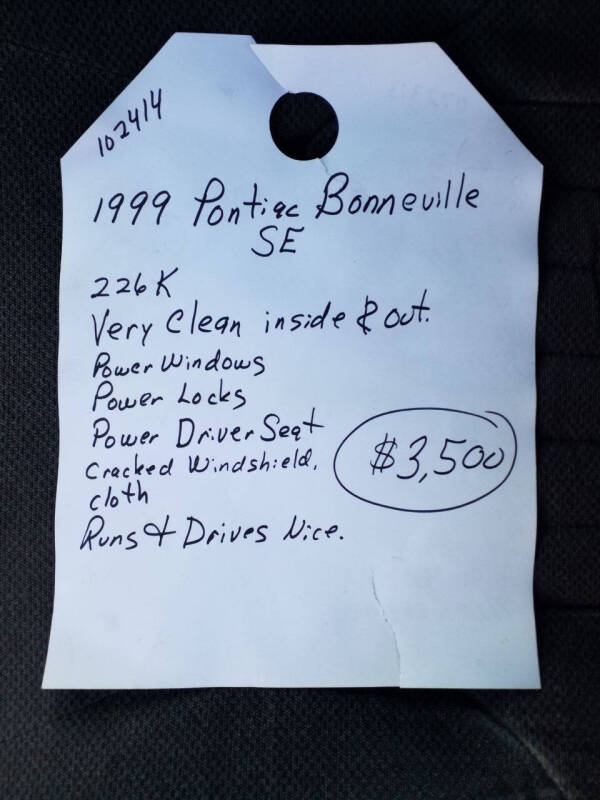 102414
1999 Pontiac Bonneville
SE
226K
Very Clean inside & out.
Power Windows
Power Locks
Power Driver Seat
Cracked Windshield,
cloth
$3,500
Runs & Drives Nice.